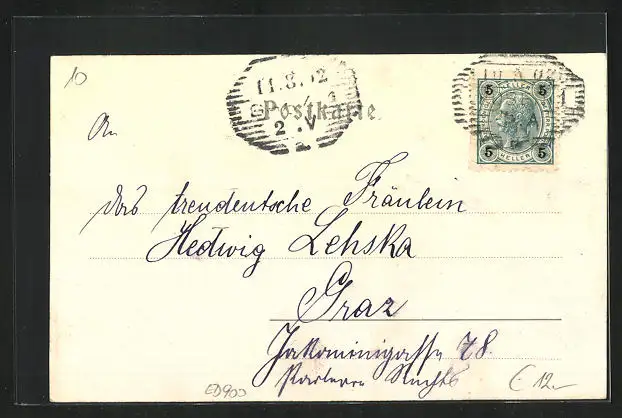 10
11.8.02
Postkarte
2.V
5 HELLER 5
5 HELLER 5
An
das treudeutsche Fräulein
Hedwig Lehska
Graz
Jakominigasse 78.
Parterre Rechts
ED900
€ 12.-